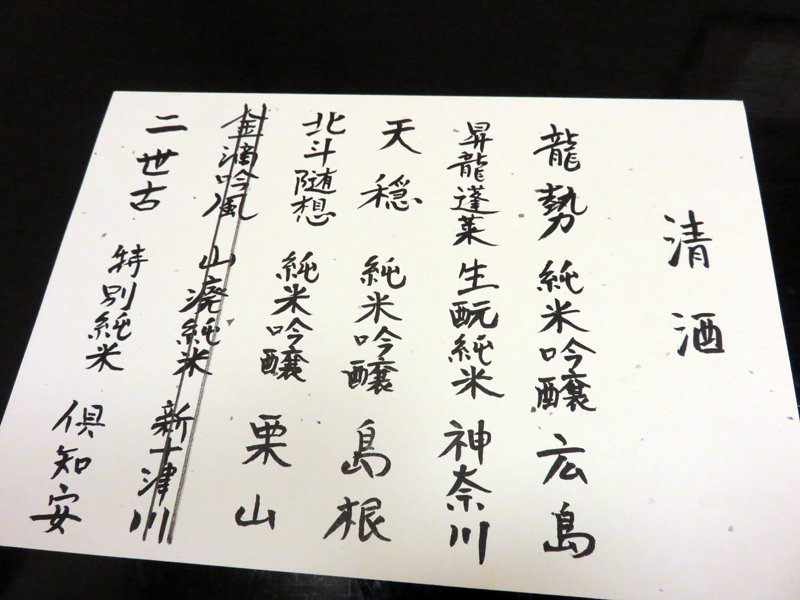 清酒
龍勢 純米吟醸 広島
昇龍蓬莱 生酛純米 神奈川
天穏 純米吟醸 島根
北斗随想 純米吟醸 栗山
金滴吟風 山廃純米 新十津川
二世古 特別純米 倶知安